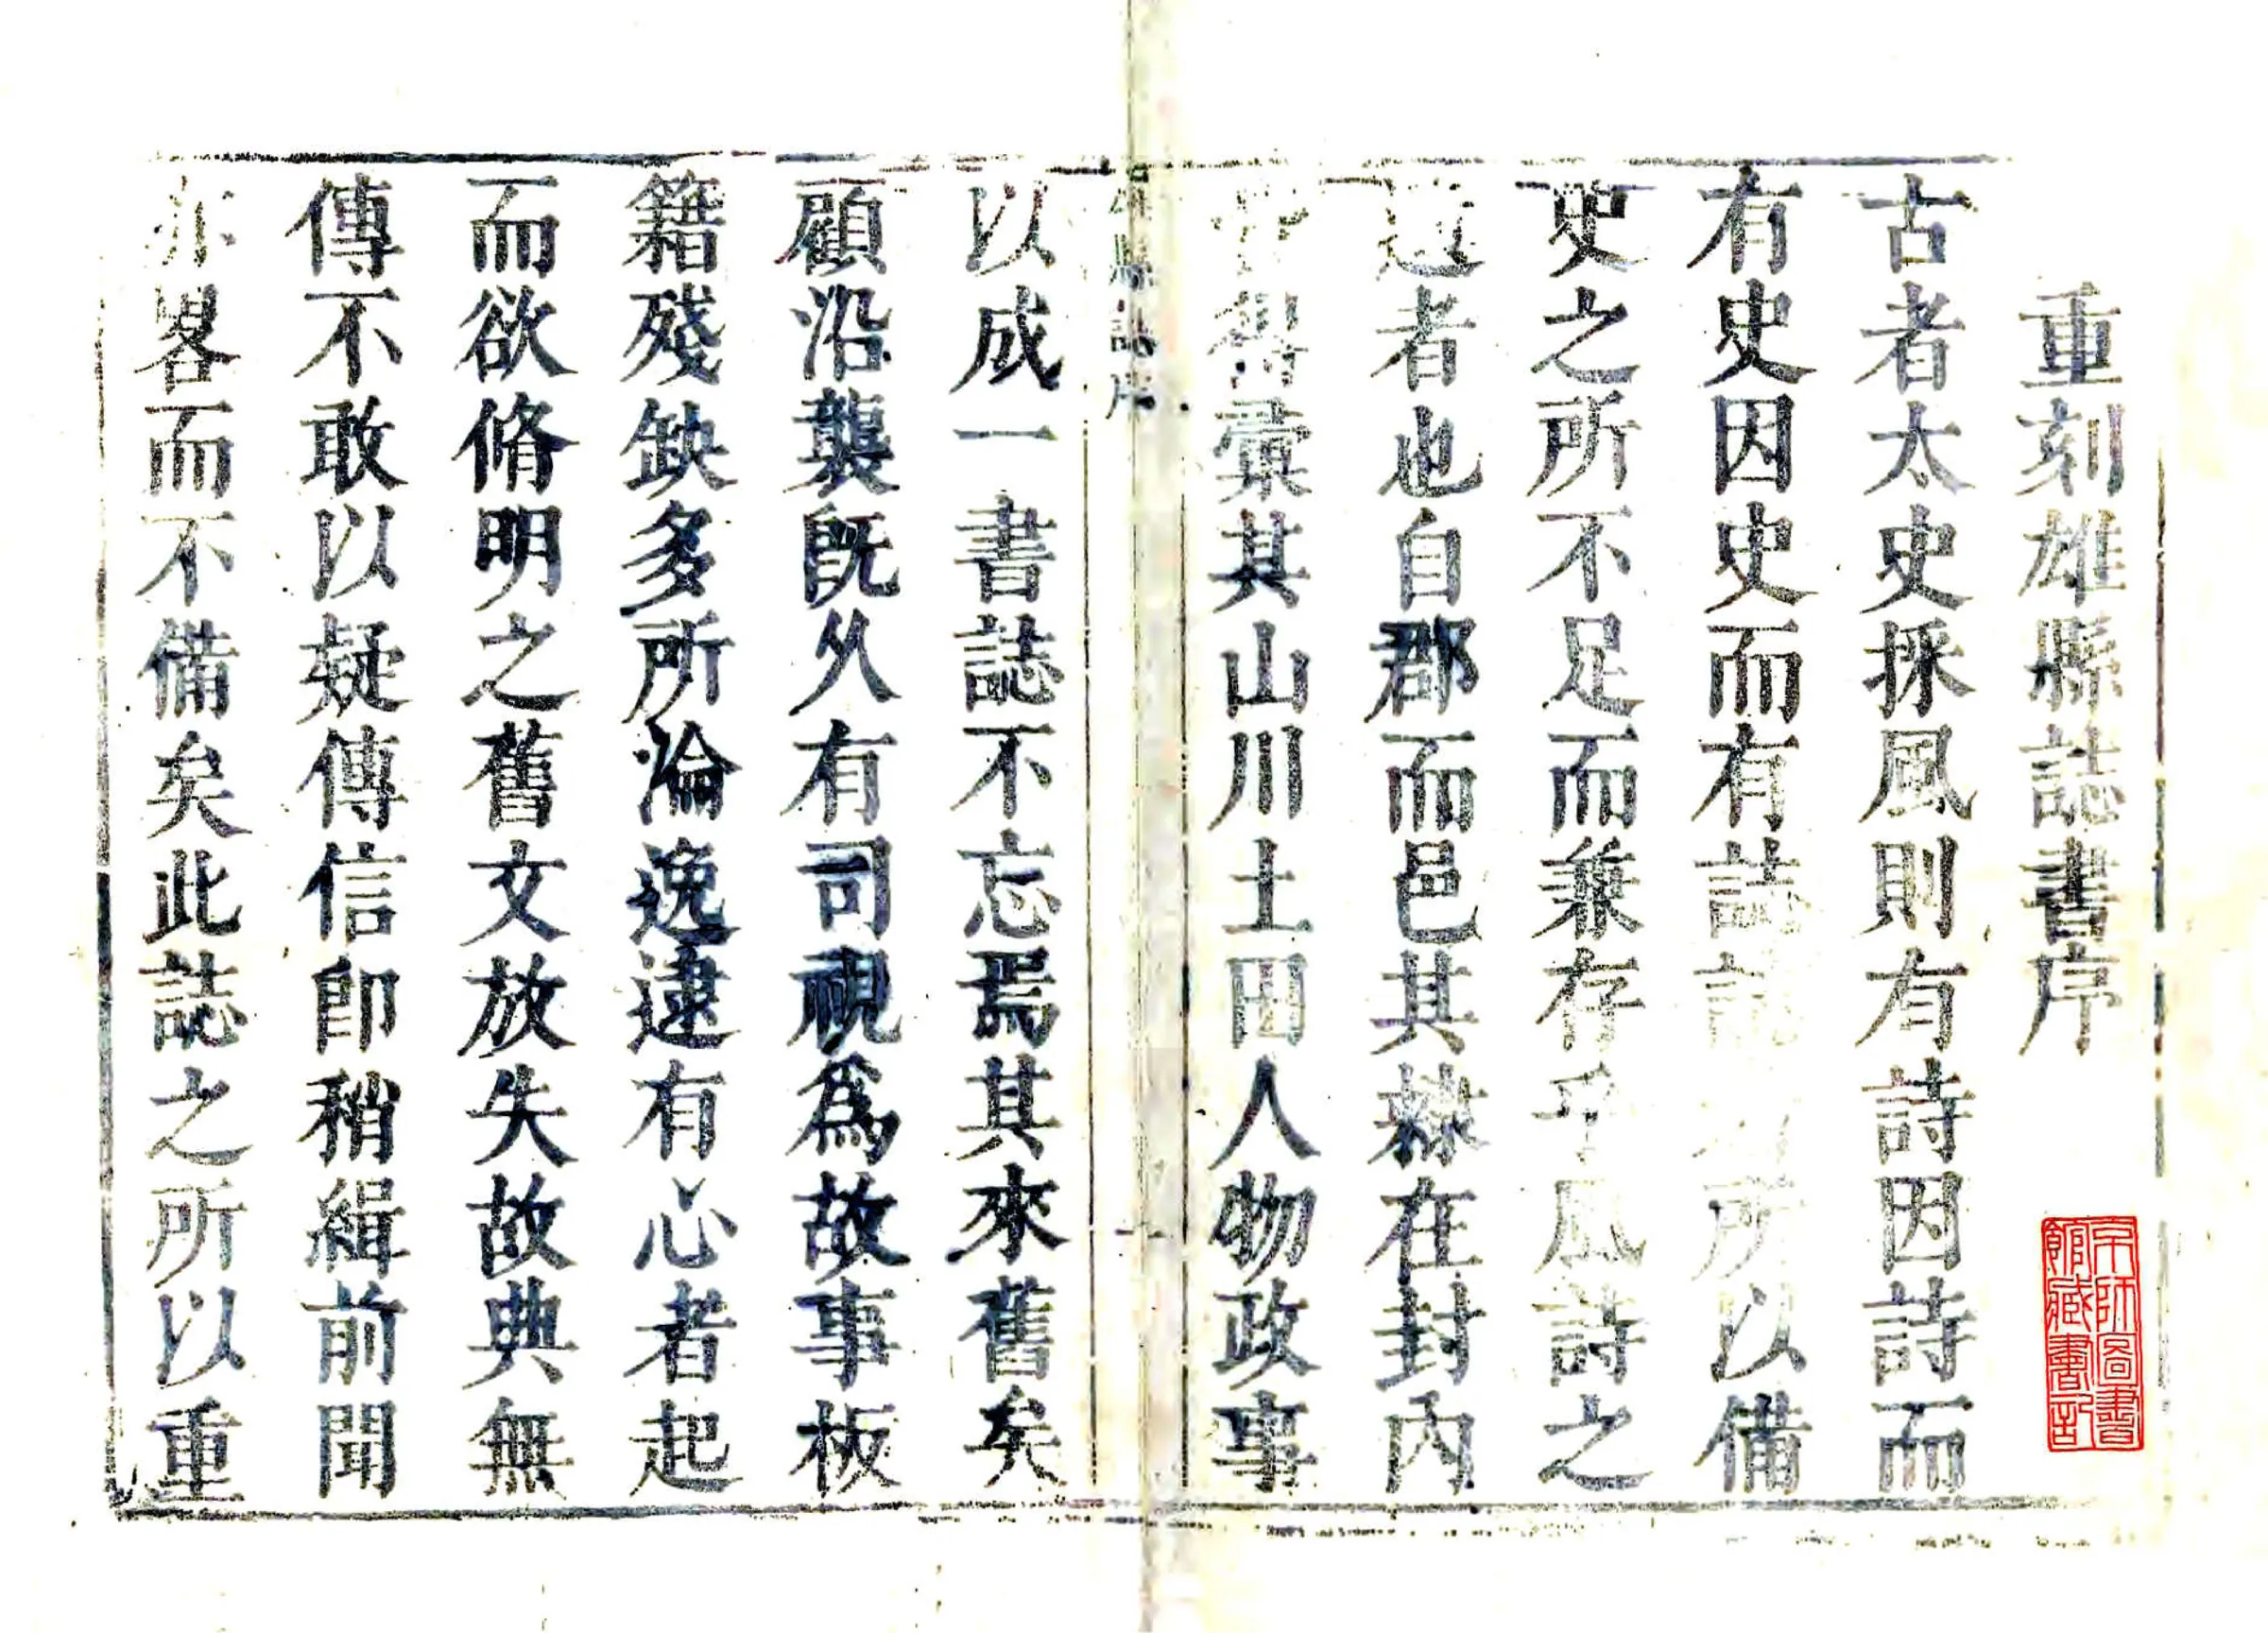 重刻雄縣誌書序
古者太史採風則有詩因詩而
有史因史而有誌誌所以備
史之所不足而兼存乎風詩之
遺者也自郡而邑其隸在封內
彙其山川土田人物政事
縣誌序
以成一書誌不忘焉其來舊矣
顧沿襲旣久有司視爲故事板
籍殘缺多所淪逸逮有心者起
而欲脩明之舊文放失故典無
傳不敢以疑傳信卽稍緝前聞
亦畧而不備矣此誌之所以重
京師圖書
館藏書記